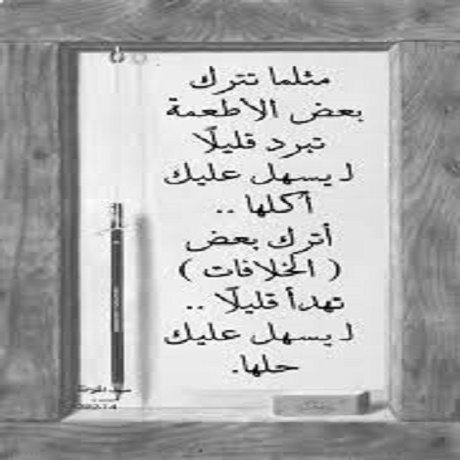 مثلما تترك
بعض الأطعمة
تبرد قليلًا
ليسهل عليك
أكلها ..
أترك بعض
( الخلافات )
تهدأ قليلًا ..
ليسهل عليك
حلها.